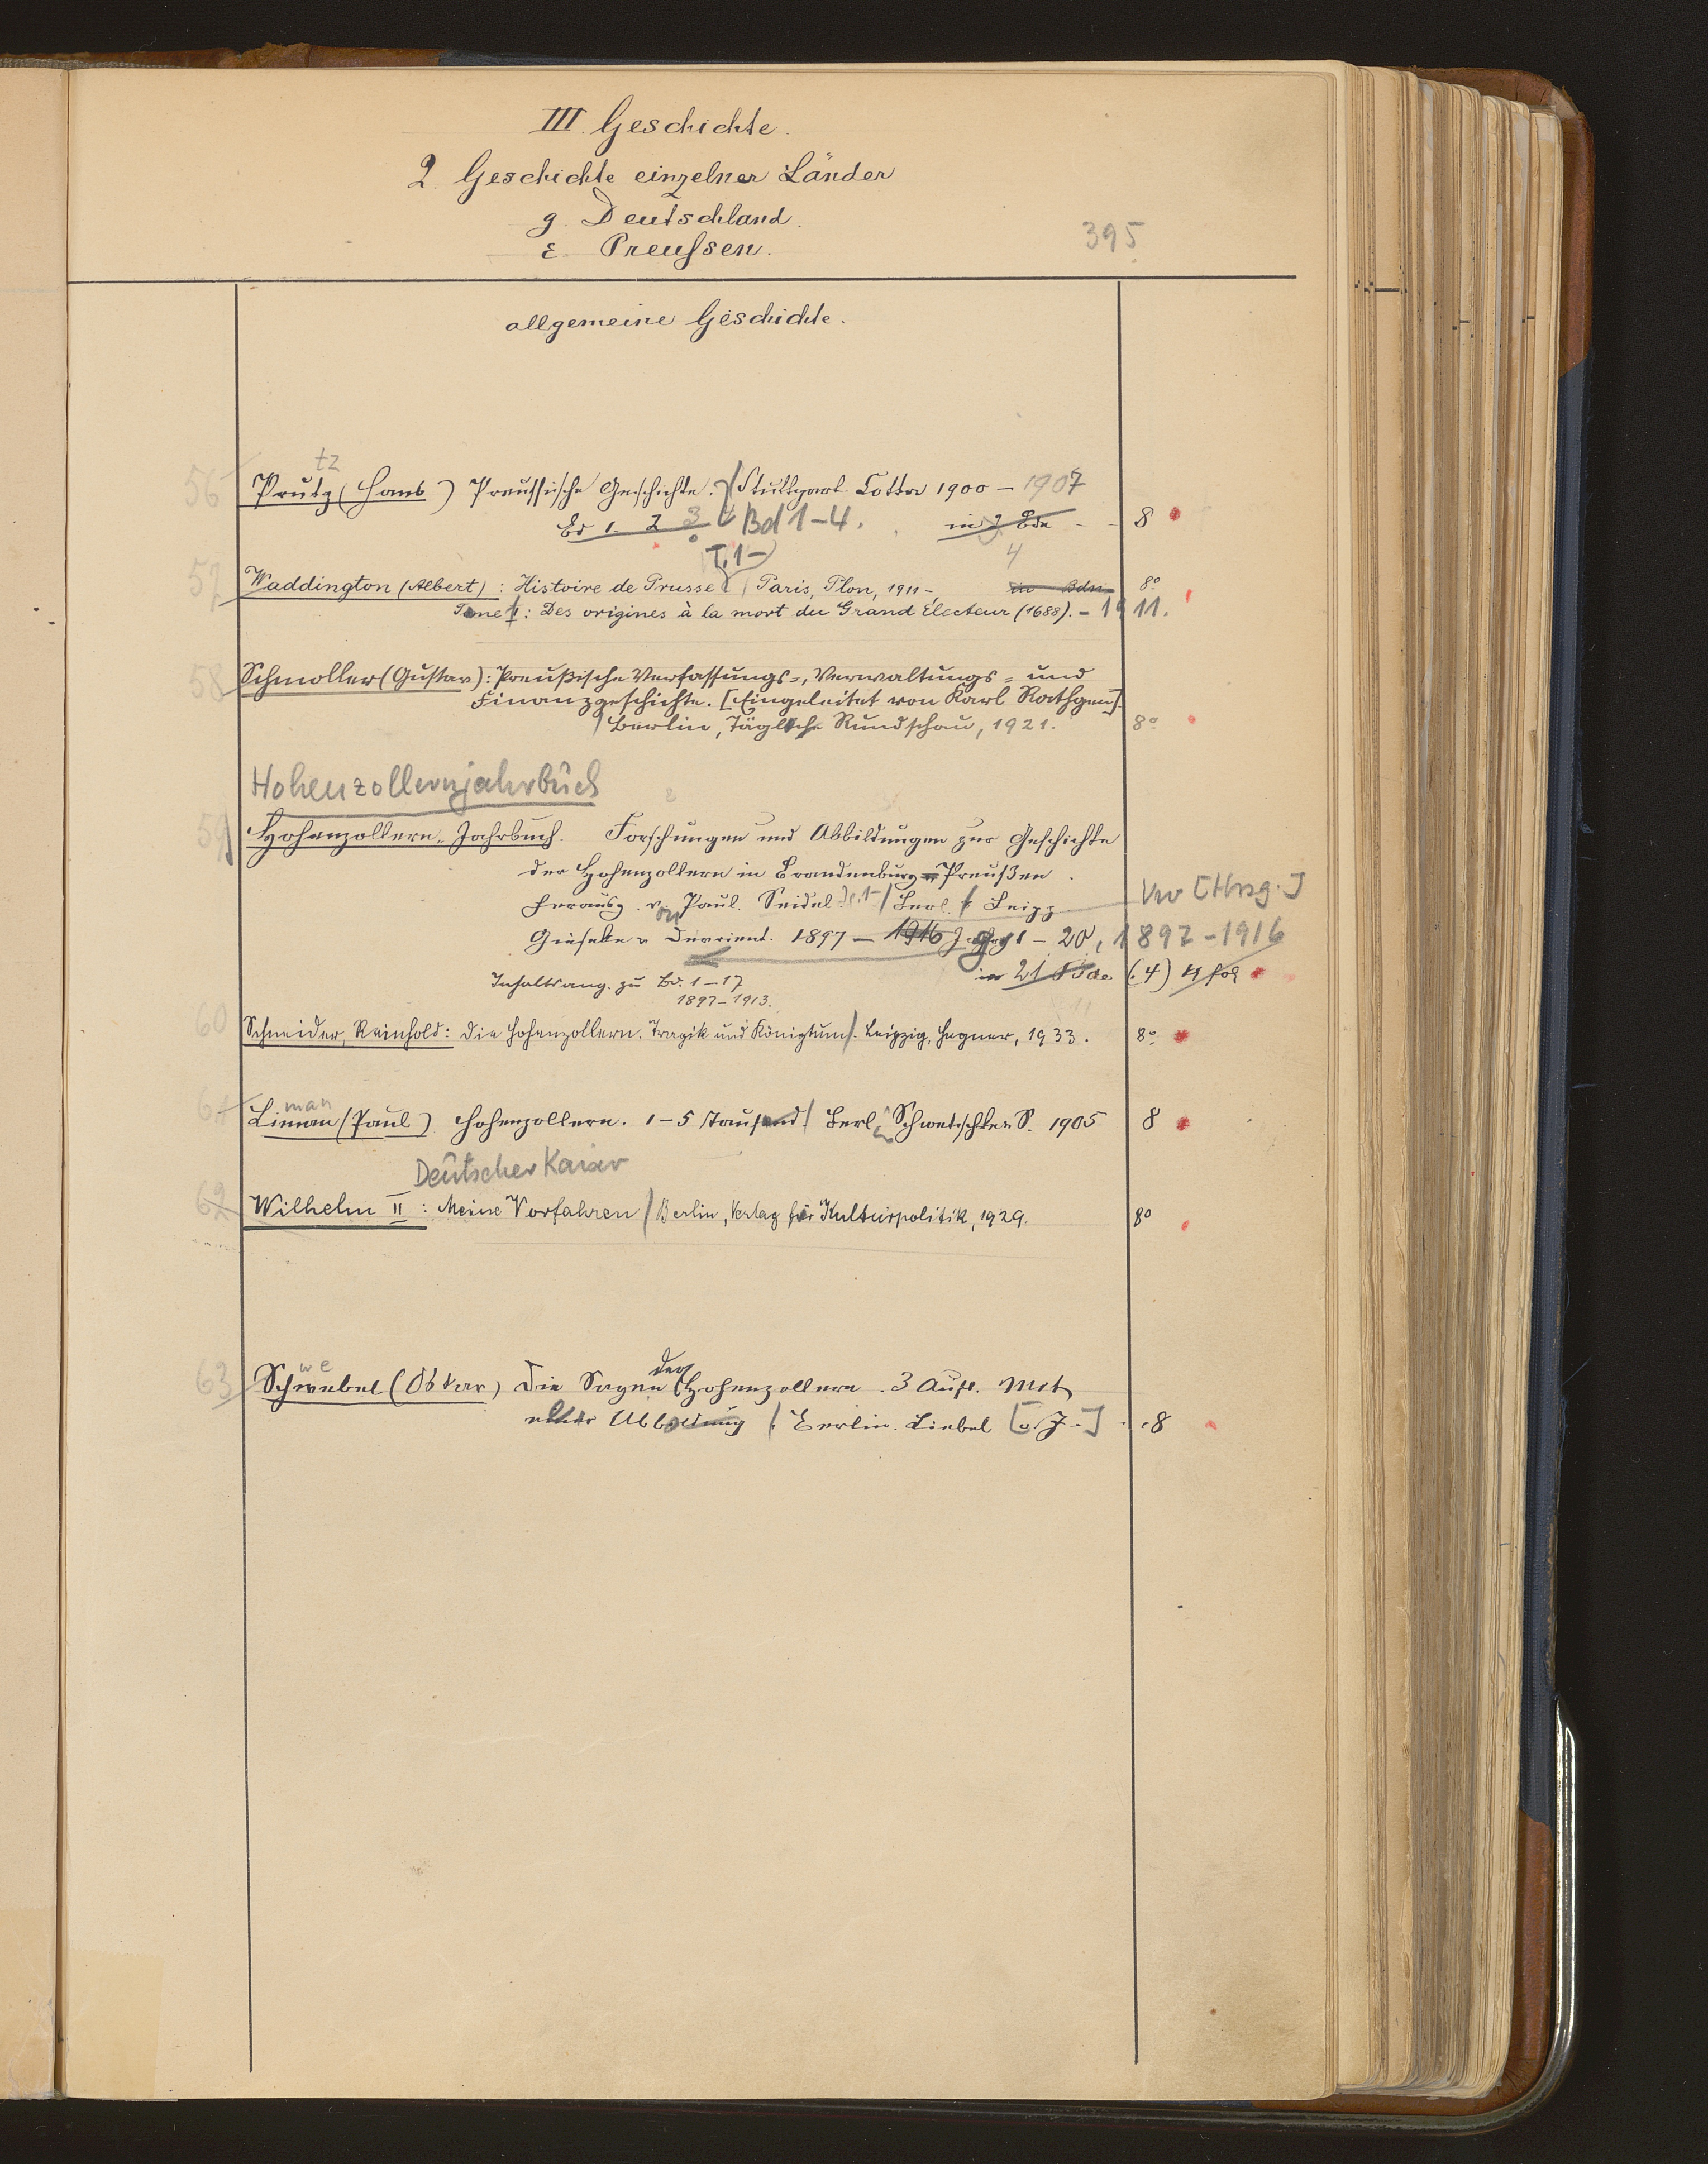 III. Geschichte.
2. Geschichte einzelner Länder
g. Deutschland.
ε. Preussen.
395
allgemeine Geschichte.
tz
56 Prutz (Hans) Preussische Geschichte. / Stuttgart Cotta 1900 – 1907
Bd 1. 2 3 4 Bd 1–4. in 3 Bdn 8
T. 1– 4
57 Waddington (Albert): Histoire de Prusse / Paris, Plon, 1911 –, in Bdn 8°
Tome I: Des origines à la mort du Grand Électeur (1688). – 1911.
58 Schmoller (Gustav): Preußische Verfassungs-, Verwaltungs- und
Finanzgeschichte. [Eingeleitet von Karl Rathgen].
/ Berlin, Tägliche Rundschau, 1921. 8°
Hohenzollernjahrbuch
59 Hohenzollern-Jahrbuch. Forschungen und Abbildungen zur Geschichte
der Hohenzollern in Brandenburg-Preußen.
Herausg. von Paul Seidel / Berl. & Leipz [Hrsg.]
Giesecke & Devrient. 1897 – 1916 Jg 1 – 20, 1897–1916
in 21 Bde. (4) 4 fol
Inhaltsang. zu Bd. 1–17
1897–1913.
60 Schneider, Reinhold: Die Hohenzollern. Tragik und Königtum /. Leipzig, Hegner, 1933. 8°
man
61 Liman (Paul) Hohenzollern. 1–5 Tausend / Berl. Schwetschke & S. 1905 8
Deutscher Kaiser
62 Wilhelm II: Meine Vorfahren / Berlin, Verlag für Kulturpolitik, 1929. 8°
we der
63 Schwebel (Oskar) Die Sagen Hohenzollern. 3 Aufl. Mit
einer Abbildung / Berlin. Liebel [o. J.] 8